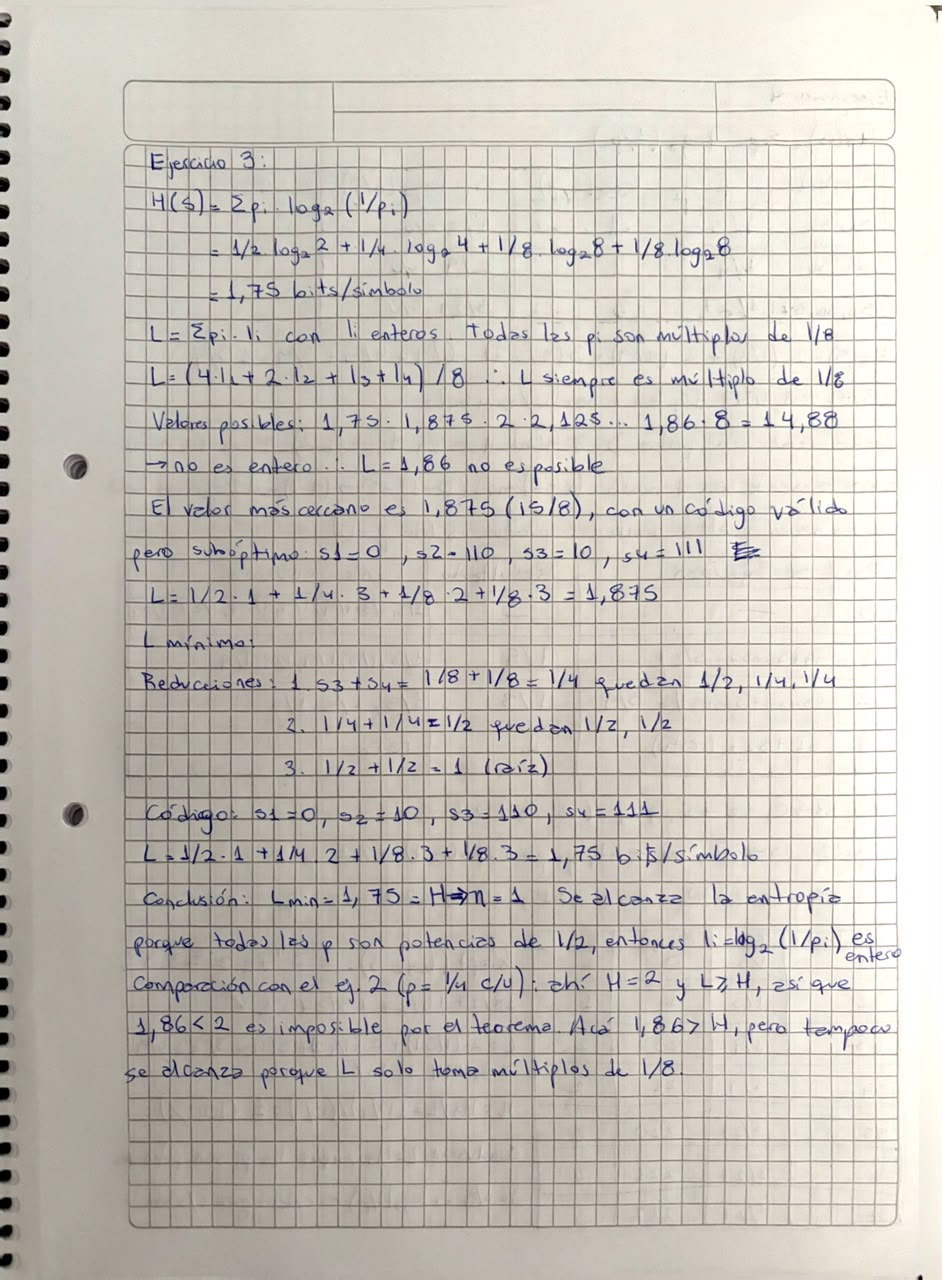 Ejercicio 3:
H(S) = Σpi · log₂ (1/pi)
= 1/2 log₂ 2 + 1/4 · log₂ 4 + 1/8 · log₂ 8 + 1/8 · log₂ 8
= 1,75 bits/símbolo
L = Σpi · li con li enteros. Todas las pi son múltiplos de 1/8
L = (4·l1 + 2·l2 + l3 + l4) /8 ∴ L siempre es múltiplo de 1/8
Valores posibles: 1,75 · 1,875 · 2 · 2,125... 1,86 · 8 = 14,88
→ no es entero ∴ L = 1,86 no es posible
El valor más cercano es 1,875 (15/8), con un código válido
pero subóptimo: s1 = 0, s2 = 110, s3 = 10, s4 = 111
L = 1/2 · 1 + 1/4 · 3 + 1/8 · 2 + 1/8 · 3 = 1,875
L mínimo:
Reducciones: 1. s3 + s4 = 1/8 + 1/8 = 1/4 quedan 1/2, 1/4, 1/4
2. 1/4 + 1/4 = 1/2 quedan 1/2, 1/2
3. 1/2 + 1/2 = 1 (raíz)
Código: s1 = 0, s2 = 10, s3 = 110, s4 = 111
L = 1/2 · 1 + 1/4 · 2 + 1/8 · 3 + 1/8 · 3 = 1,75 bits/símbolo
Conclusión: Lmin = 1,75 = H ⇒ η = 1 Se alcanza la entropía
porque todas las p son potencias de 1/2, entonces li = log₂ (1/pi) es entero
Comparación con el ej. 2 (p = 1/4 c/u): ahí H = 2 y L ≥ H, así que
1,86 < 2 es imposible por el teorema. Acá 1,86 > H, pero tampoco
se alcanza porque L solo toma múltiplos de 1/8.